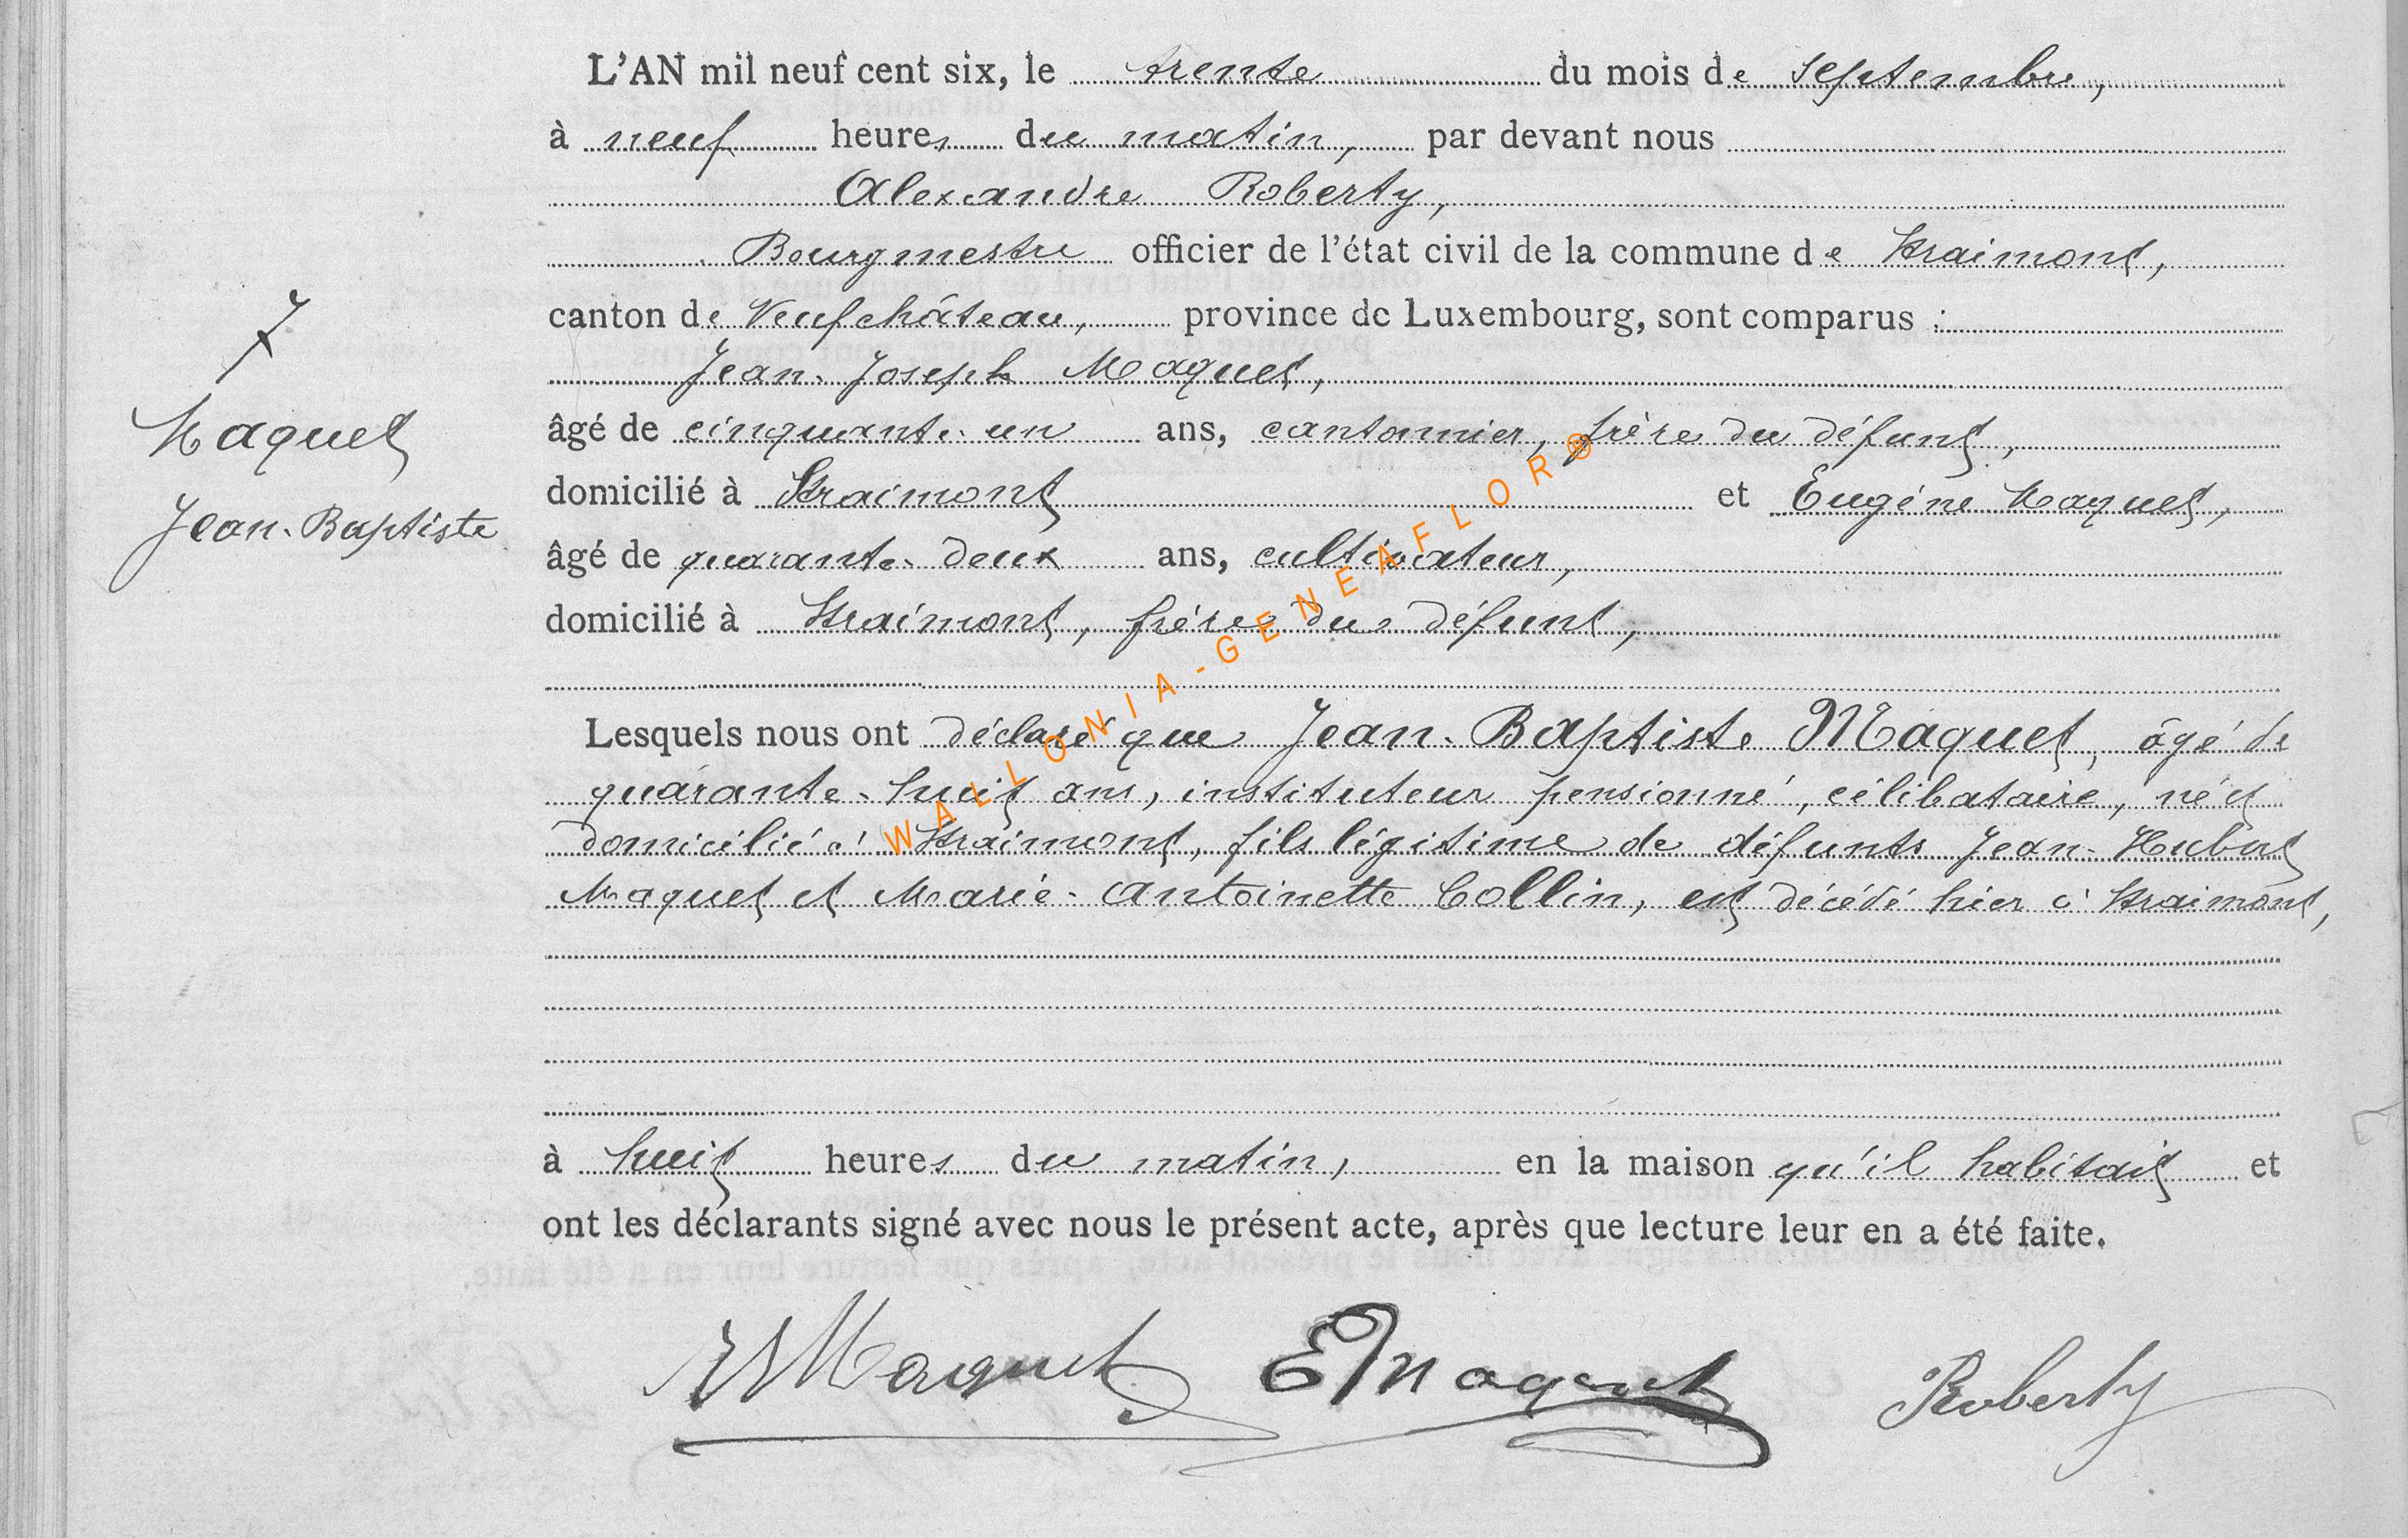 L'AN mil neuf cent six, le trente du mois de septembre,
à neuf heures du matin, par devant nous
Alexandre Roberty,
Bourgmestre officier de l'état civil de la commune de Straimont,
canton de Neufchâteau, province de Luxembourg, sont comparus :
Jean-Joseph Maquet,
âgé de cinquante-un ans, cantonnier, frère du défunt,
domicilié à Straimont et Eugène Maquet,
âgé de quarante-deux ans, cultivateur,
domicilié à Straimont, frère du défunt,
Lesquels nous ont déclaré que Jean-Baptiste Maquet, âgé de
quarante-huit ans, instituteur pensionné, célibataire, né et
domicilié à Straimont, fils légitime de défunts Jean-Hubert
Maquet et Marie-Antoinette Collin, est décédé hier à Straimont,
à huit heures du matin, en la maison qu'il habitait et
ont les déclarants signé avec nous le présent acte, après que lecture leur en a été faite.
7
Maquet
Jean-Baptiste
WALLONIA-GENEAFLOR®
Maquet EMaquet Roberty